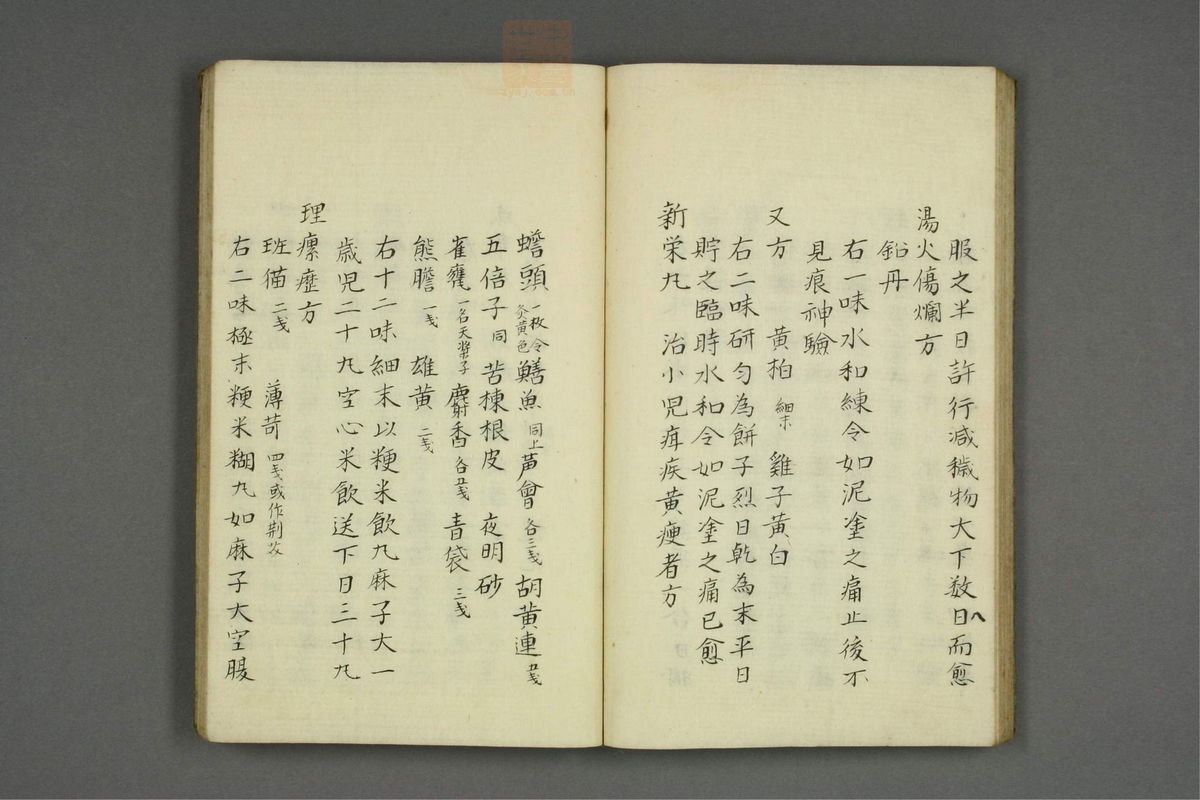 服之半日許行減穢物大下数日而愈
湯火傷爛方
鉛丹
右一味水和練令如泥塗之痛止後不
見痕神驗
又方 黄柏 細末 雞子黄白
右二味研匀為餅子烈日乾為末平日
貯之臨時水和令如泥塗之痛已愈
新荣丸 治小児疳疾黄痩者方
蟾頭 一枚令炙黄色 鱔魚 同上 芦會 各三戔 胡黄連 五戔
五倍子 同 苦楝根皮 夜明砂
雀甕 一名天漿子 麝香 各五戔 青袋 三戔
熊膽 一戔 雄黄 二戔
右十二味細末以粳米飲丸麻子大一
歳児二十丸空心米飲送下日三十丸
理瘰癧方
班猫 二戔 薄苛 四戔或作荆芥
右二味極末粳米糊丸如麻子大空腸